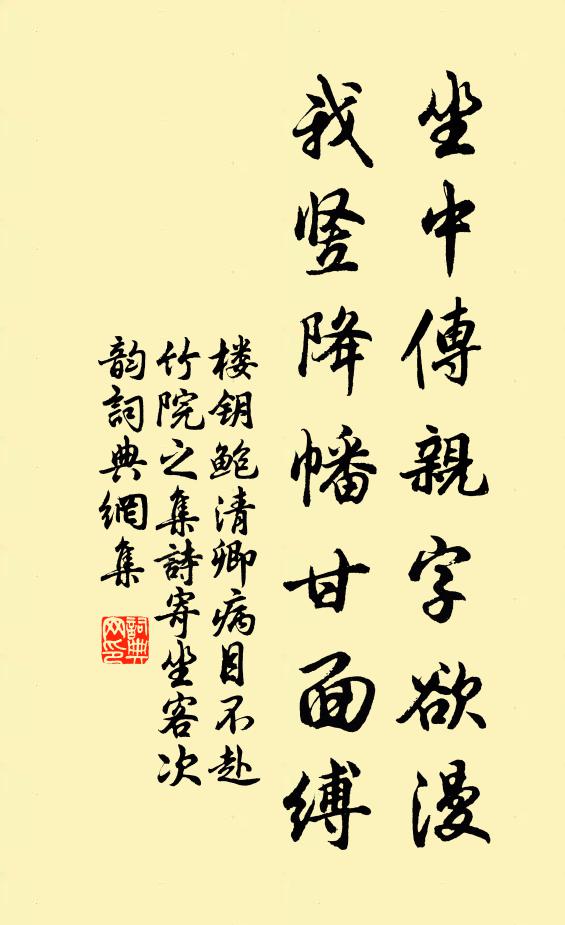 坐中傳親字欲漫
我竖降幡甘面缚
楼钥鲍清卿病目不赴
竹院之集詩寄坐客次
韵詞典網集
詞典网印